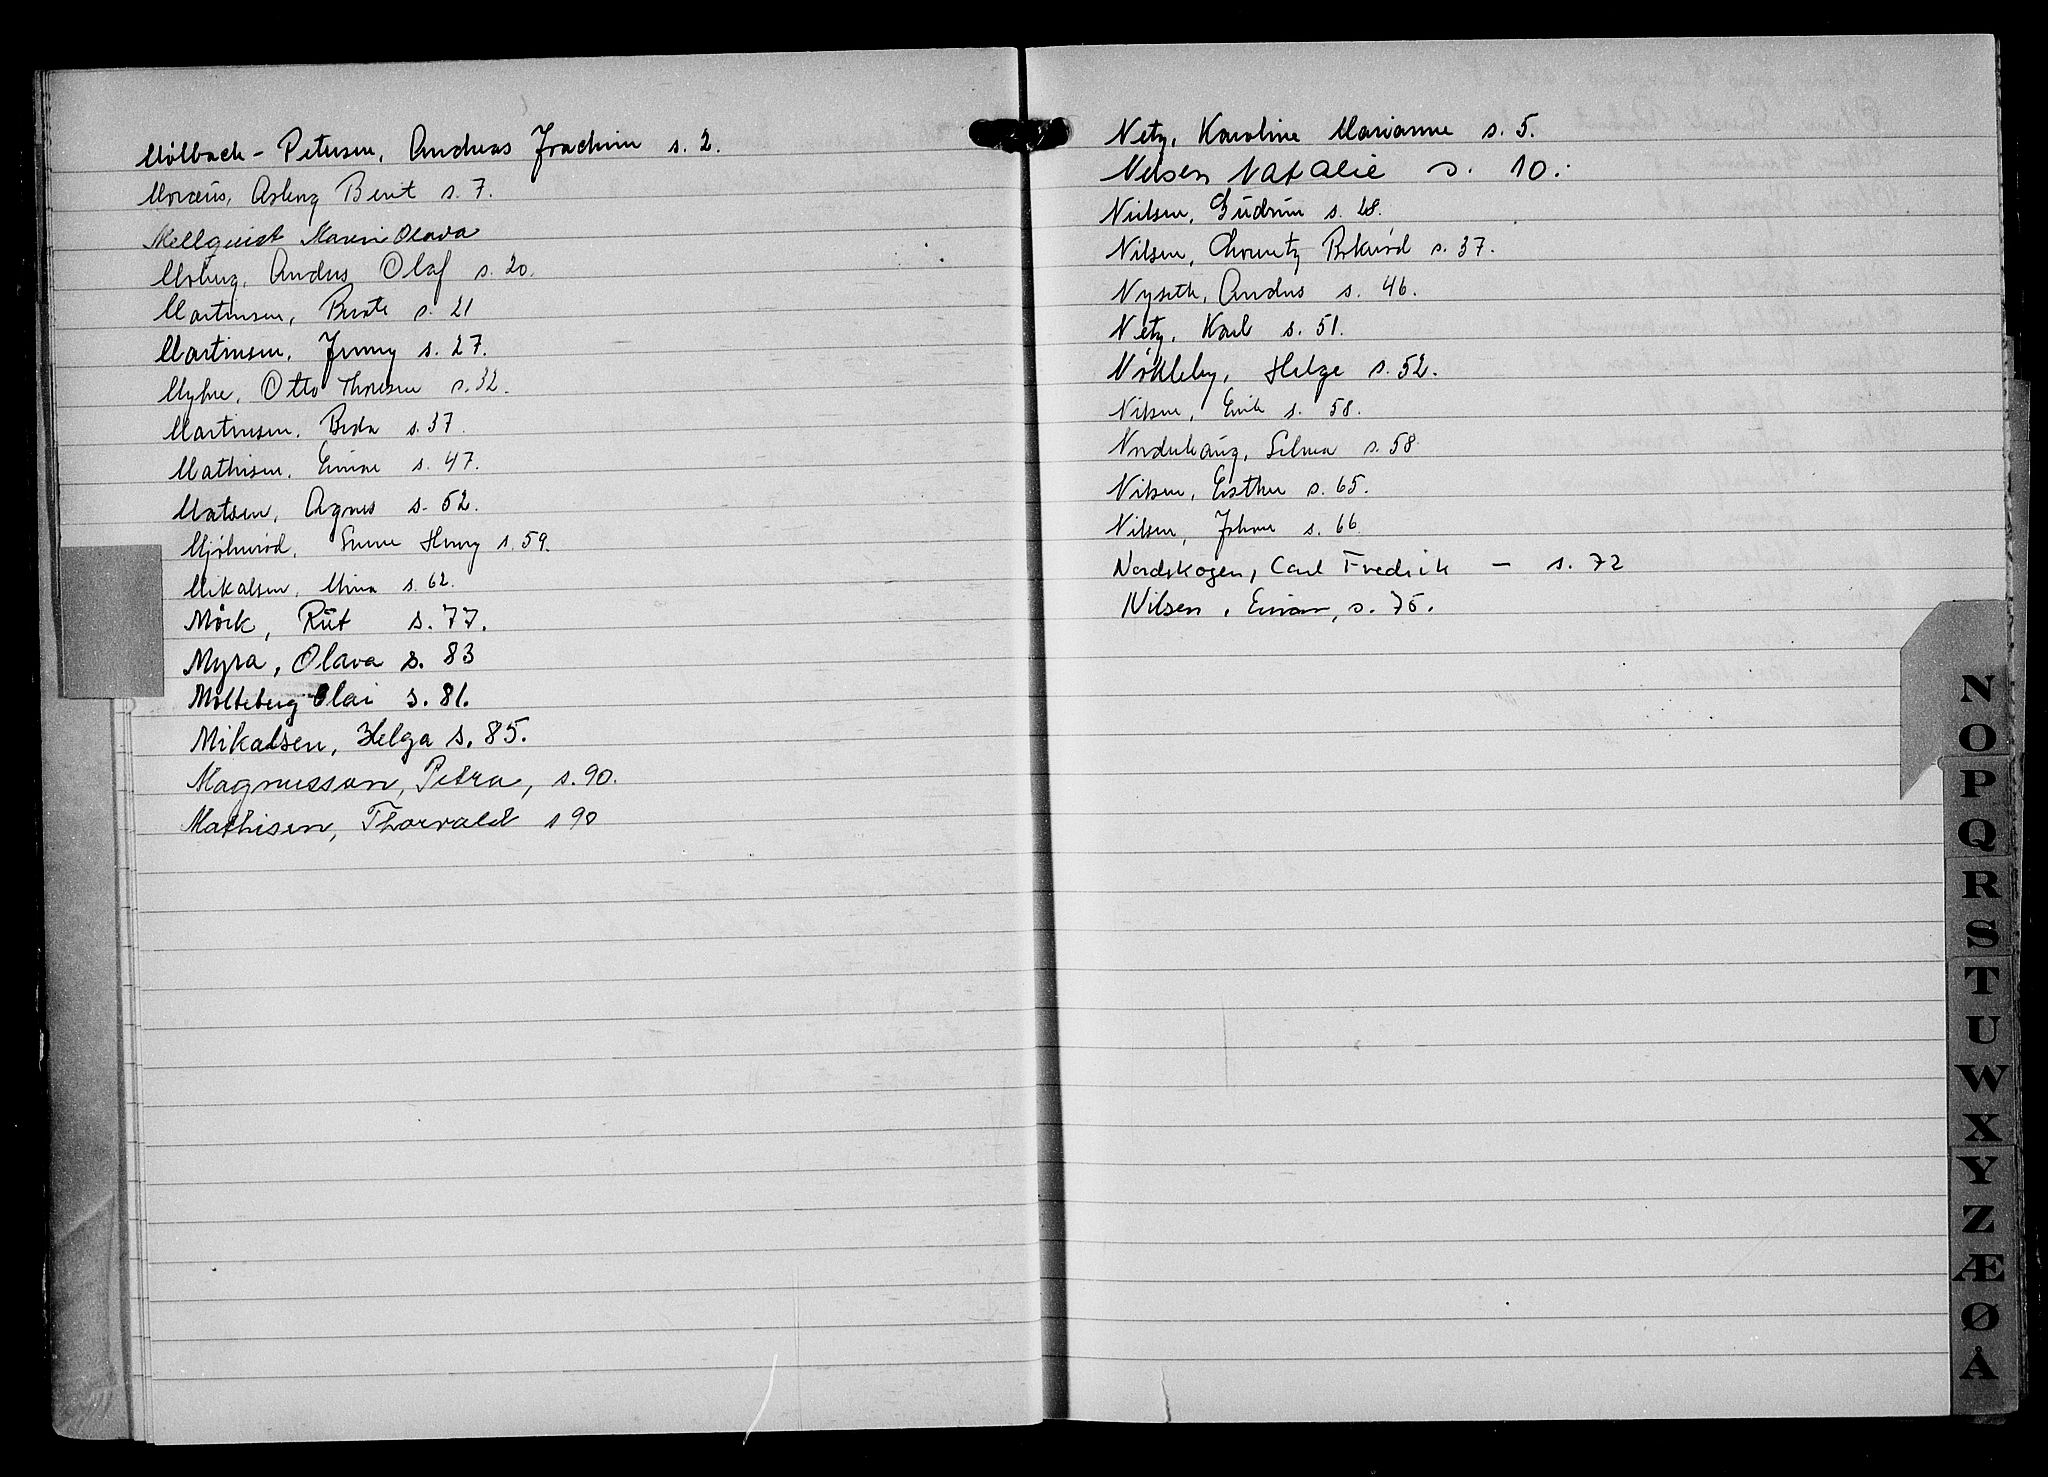 Mølbach - Petersen, Andreas Joachim s. 2.
Moræus, Aslaug Berit s. 7.
Mellquist Maren Olava
Moberg, Anders Olaf s. 20.
Martinsen, Beate s. 21
Martinsen, Jenny s. 27.
Myhre, Otto Thoresen s. 32.
Martinsen, Beda s. 37.
Mathisen, Einar s. 47.
Matsen, Agnes s. 52.
Mjølnerød, Henry s. 59.
Mikalsen, Mina s. 62.
Mörk, Rut s. 77.
Myra, Olava s. 83
Molteberg Olai s. 81.
Mikalsen, Helga s. 85.
Magnusson, Petra, s. 90.
Mathisen, Thorvald s 90
Netz, Karoline Marianne s. 5.
Nelsen Natalie s. 10.
Nielsen, Gudrun s. 28.
Nilsen, s. 37.
Nyseth, Anders s. 46.
Netz, Karl s. 51.
Nökleby, Helge s. 52.
Nilsen, Erik s. 58.
Nordhaug, Selma s. 58
Nilsen, Esther s. 65.
Nilsen, Johan s. 66
Nordskogen, Carl Fredrik — s. 72
Nilsen, Einar, s. 75.
N
O
P
Q
R
S
T
U
W
X
Y
Z
Æ
Ø
Å